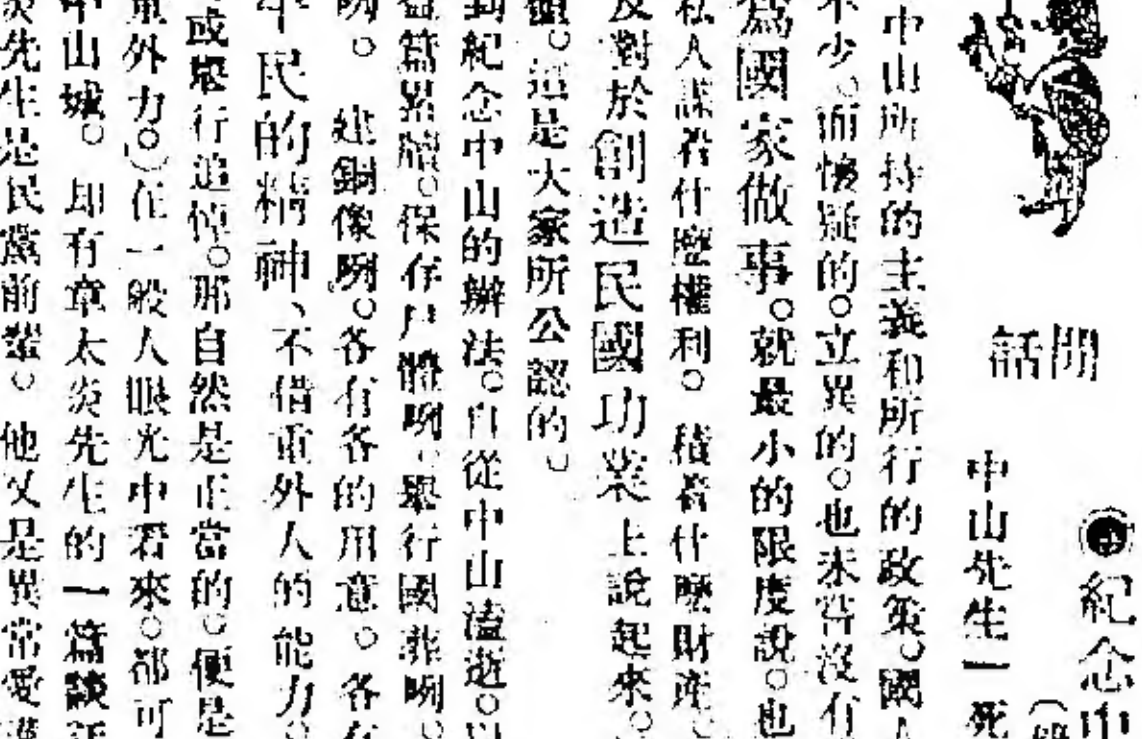 閒話
紀念中
中山先生一死
中山所持的主義和所行的政策。國
不少。而懷疑的。立異的。也未嘗沒有
爲國家做事。就最小的限度說。也
私人謀着什麼權利。積着什麼財產。
反對於創造民國功業上說起來。
領。這是大家所公認的。
到紀念中山的辦法。自從中山溘逝。以
篇累牘。保存尸體咧。舉行國葬咧。
咧。建銅像咧。各有各的用意。各有
平民的精神、不借重外人的能力
或舉行追悼。那自然是正當的。便是
重外力。)在一般人眼光中看來。都可
中山城。却有章太炎先生的一篇談話
炎先生是民黨前輩。他又是異常愛護